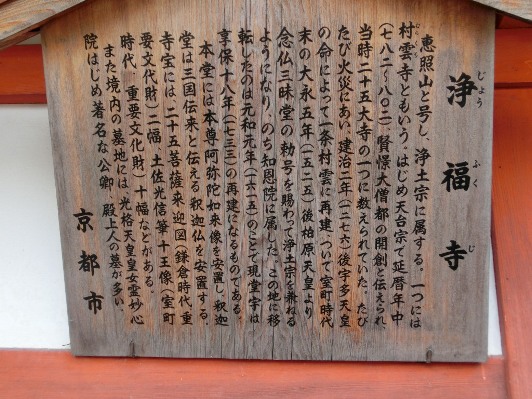 浄福寺
じょう ふく じ
恵照山と号し、浄土宗に属する。一つには
村雲寺ともいう。はじめ天台宗で延暦年中
むらくも
(七八二〜八〇二)賢憬大僧都の開創と伝えられ
当時二十五大寺の一つに数えられていた。たび
たび火災にあい、建治二年(一二七六)後宇多天皇
の命によって一条村雲に再建、ついで室町時代
末の大永五年(一五二五)後柏原天皇より
念仏三昧堂の勅号を賜わって浄土宗を兼ねる
ようになり、のち知恩院に属した。この地に移
転したのは元和元年(一六一五)のことで現堂宇は
享保十八年(一七三三)の再建になるものである。
本堂には本尊阿弥陀如来像を安置し、釈迦
堂は三国伝来と伝える釈迦仏を安置する。
寺宝には、二十五菩薩来迎図(鎌倉時代、重
要文化財)二幅、土佐光信筆十王像(室町
時代、重要文化財)十幅などがある。
また境内の墓地には、光格天皇皇女霊妙心
院はじめ著名な公卿、殿上人の墓が多い。
京都市